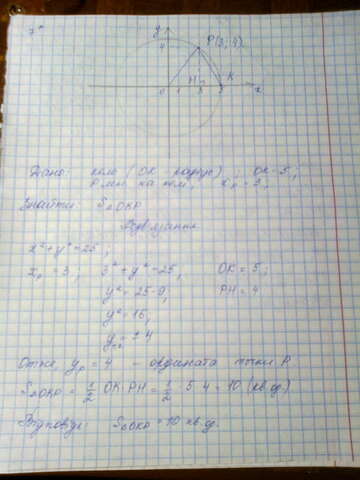 7*
y
4
P(3; 4)
H
K
0 1 3 x
Дано: коло (OK - радіус), OK = 5;
P лежить на колі, xₚ = 3;
Знайти: S△OKP
Розв'язання
x² + y² = 25;
xₚ = 3; 3² + y² = 25, OK = 5;
y² = 25-9, PH = 4
y² = 16,
y = ± 4
Отже, yₚ = 4 - ордината точки P.
S△OKP = 1/2 OK·PH = 1/2 · 5·4 = 10 (кв.од.)
Відповідь: S△OKP = 10 кв.од.